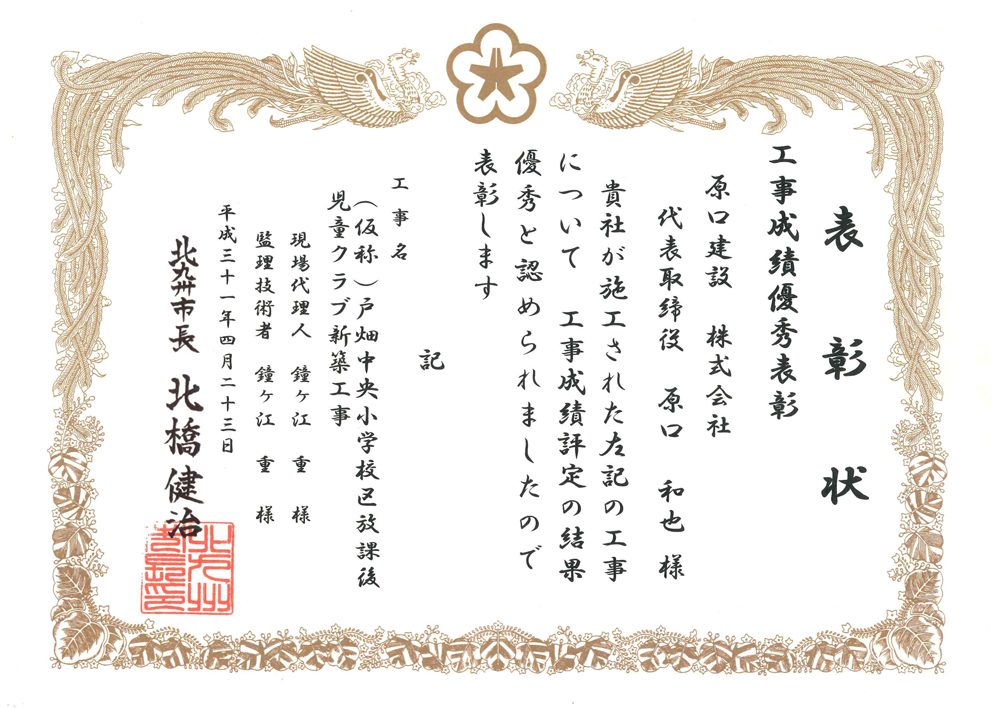 表彰状
工事成績優秀表彰
原口建設　株式会社
代表取締役　原口　和也　様
貴社が施工された左記の工事
について　工事成績評定の結果
優秀と認められましたので
表彰します
記
工事名
（仮称）戸畑中央小学校区放課後
児童クラブ新築工事
現場代理人　鐘ヶ江　重　様
監理技術者　鐘ヶ江　重　様
平成三十一年四月二十三日
北九州市長　北橋健治
北九州市長之印